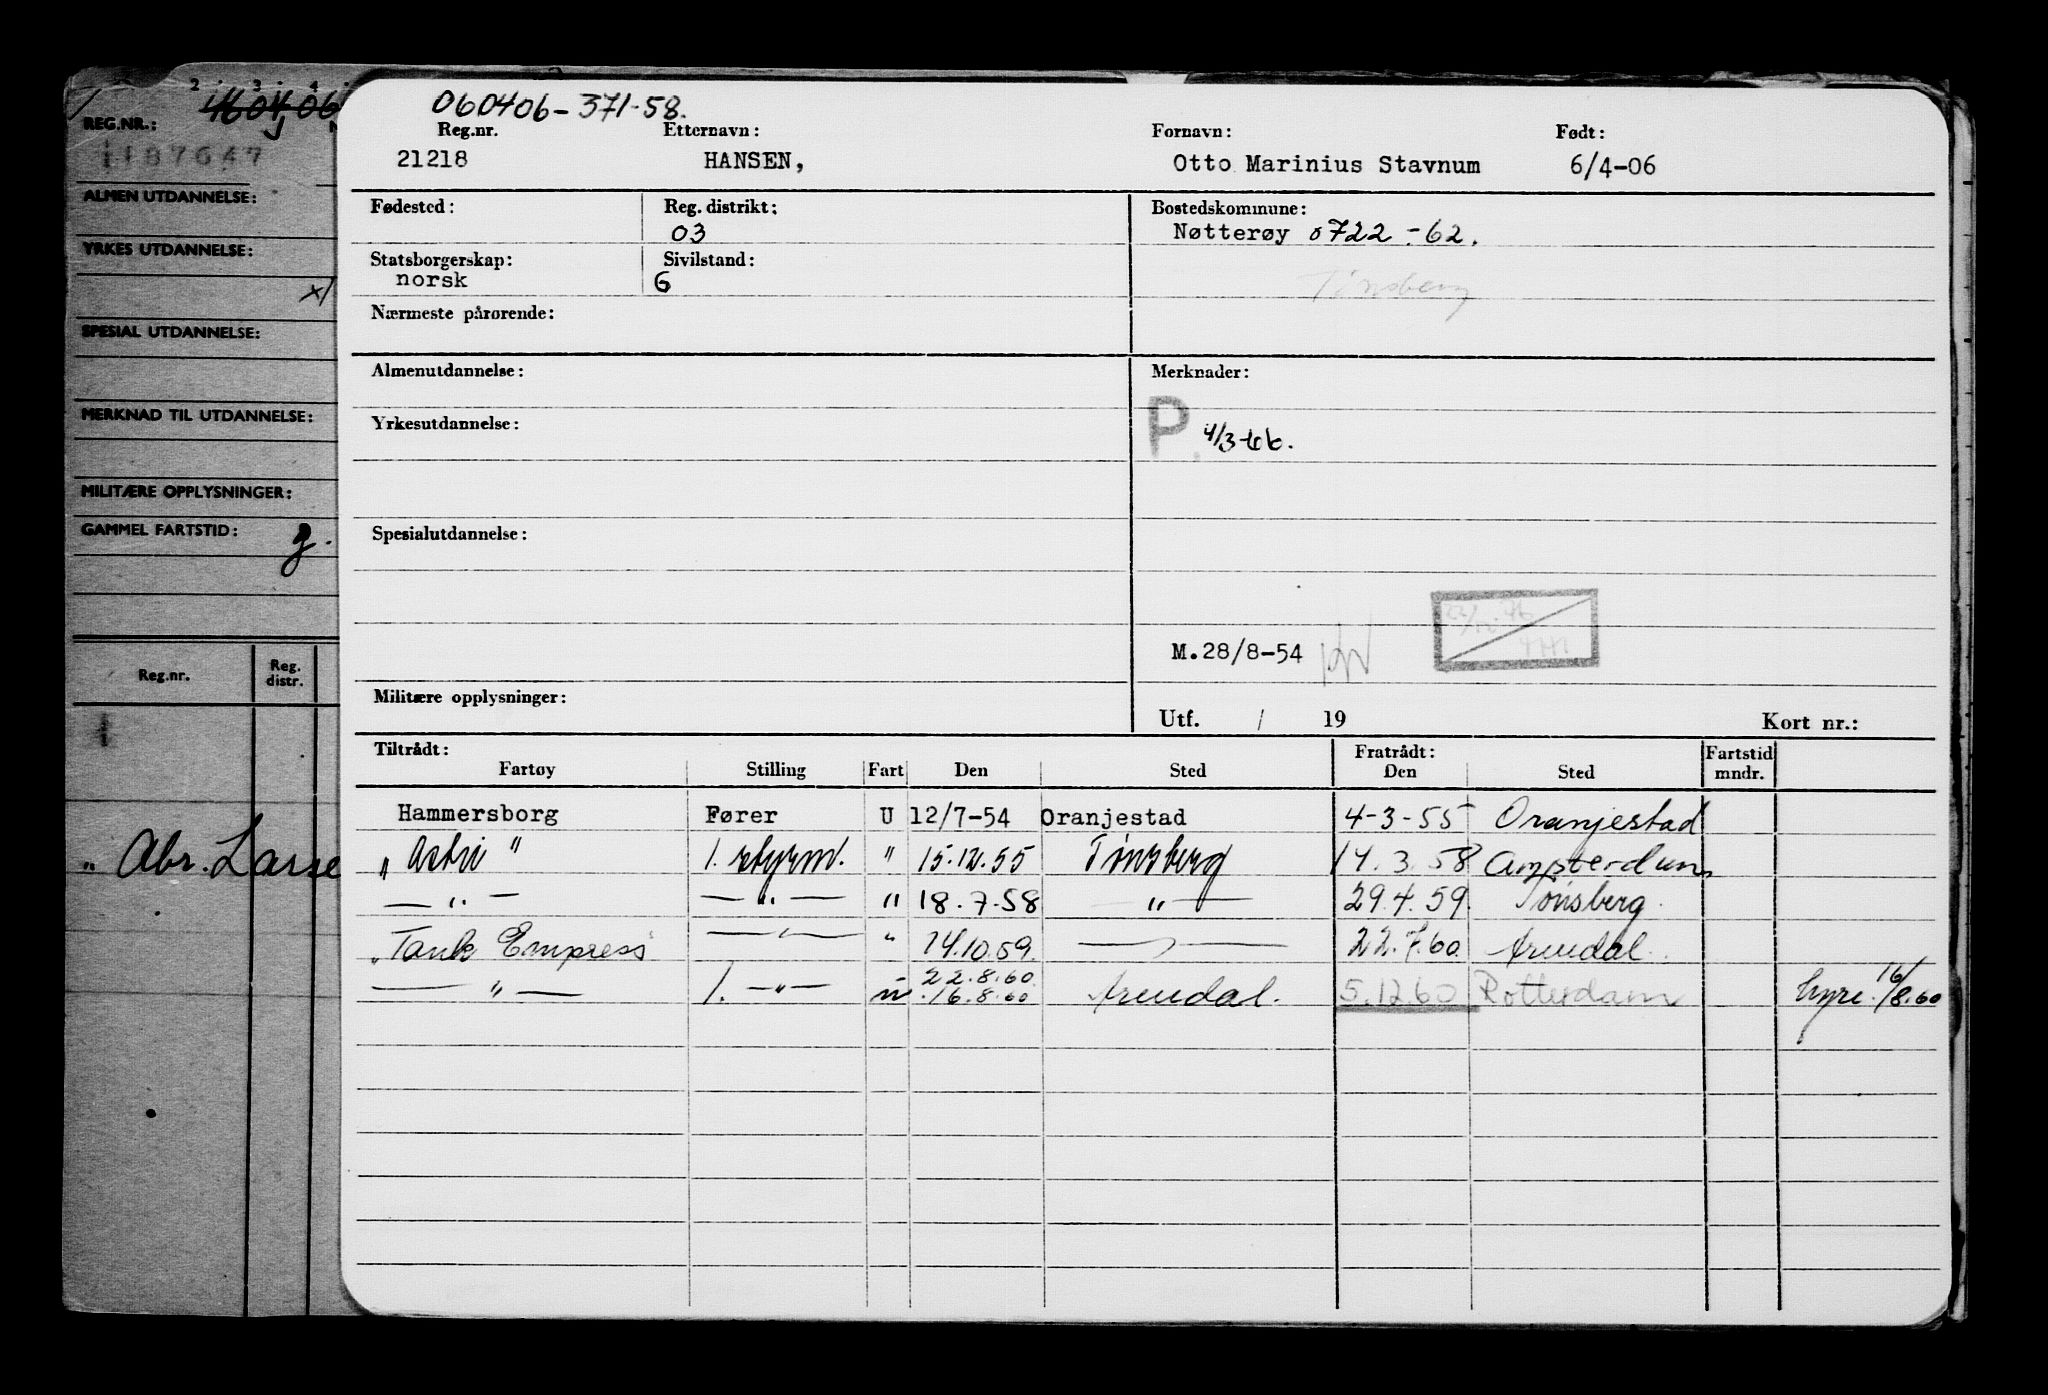 2 3 4
160406
REG.NR.:
187647
ALMEN UTDANNELSE:
YRKES UTDANNELSE:
SPESIAL UTDANNELSE:
MERKNAD TIL UTDANNELSE:
MILITÆRE OPPLYSNINGER:
GAMMEL FARTSTID: g.
Reg.nr. Reg. distr.
" Abr. Lars
060406-371-58.
Reg.nr. Etternavn: Fornavn: Født:
21218 HANSEN, Otto Marinius Stavnum 6/4-06
Fødested: Reg. distrikt: Bostedskommune:
03 Nøtterøy 0722-62.
Statsborgerskap: Sivilstand:
norsk 6 Tønsberg
Nærmeste pårørende:
Almenutdannelse: Merknader:
Yrkesutdannelse: P. 4/3-66.
Spesialutdannelse:
M.28/8-54
Militære opplysninger:
Utf. / 19 Kort nr.:
Tiltrådt: Fratrådt: Fartstid
Fartøy Stilling Fart Den Sted Den Sted mndr.
Hammersborg Fører U 12/7-54 Oranjestad 4-3-55 Oranjestad
" Astri " 1. styrm. " 15.12.55 Tønsberg 14.3.58 Amsterdam
— " — — " — " 18.7.58 — " — 29.4.59 Tønsberg
" Tank Empress — " — " 14.10.59. — " — 22.7.60 Arendal.
22.8.60
— " — 1. — " — " 16.8.60 Arendal. 5.12.60 Rotterdam hyre 16/8.60